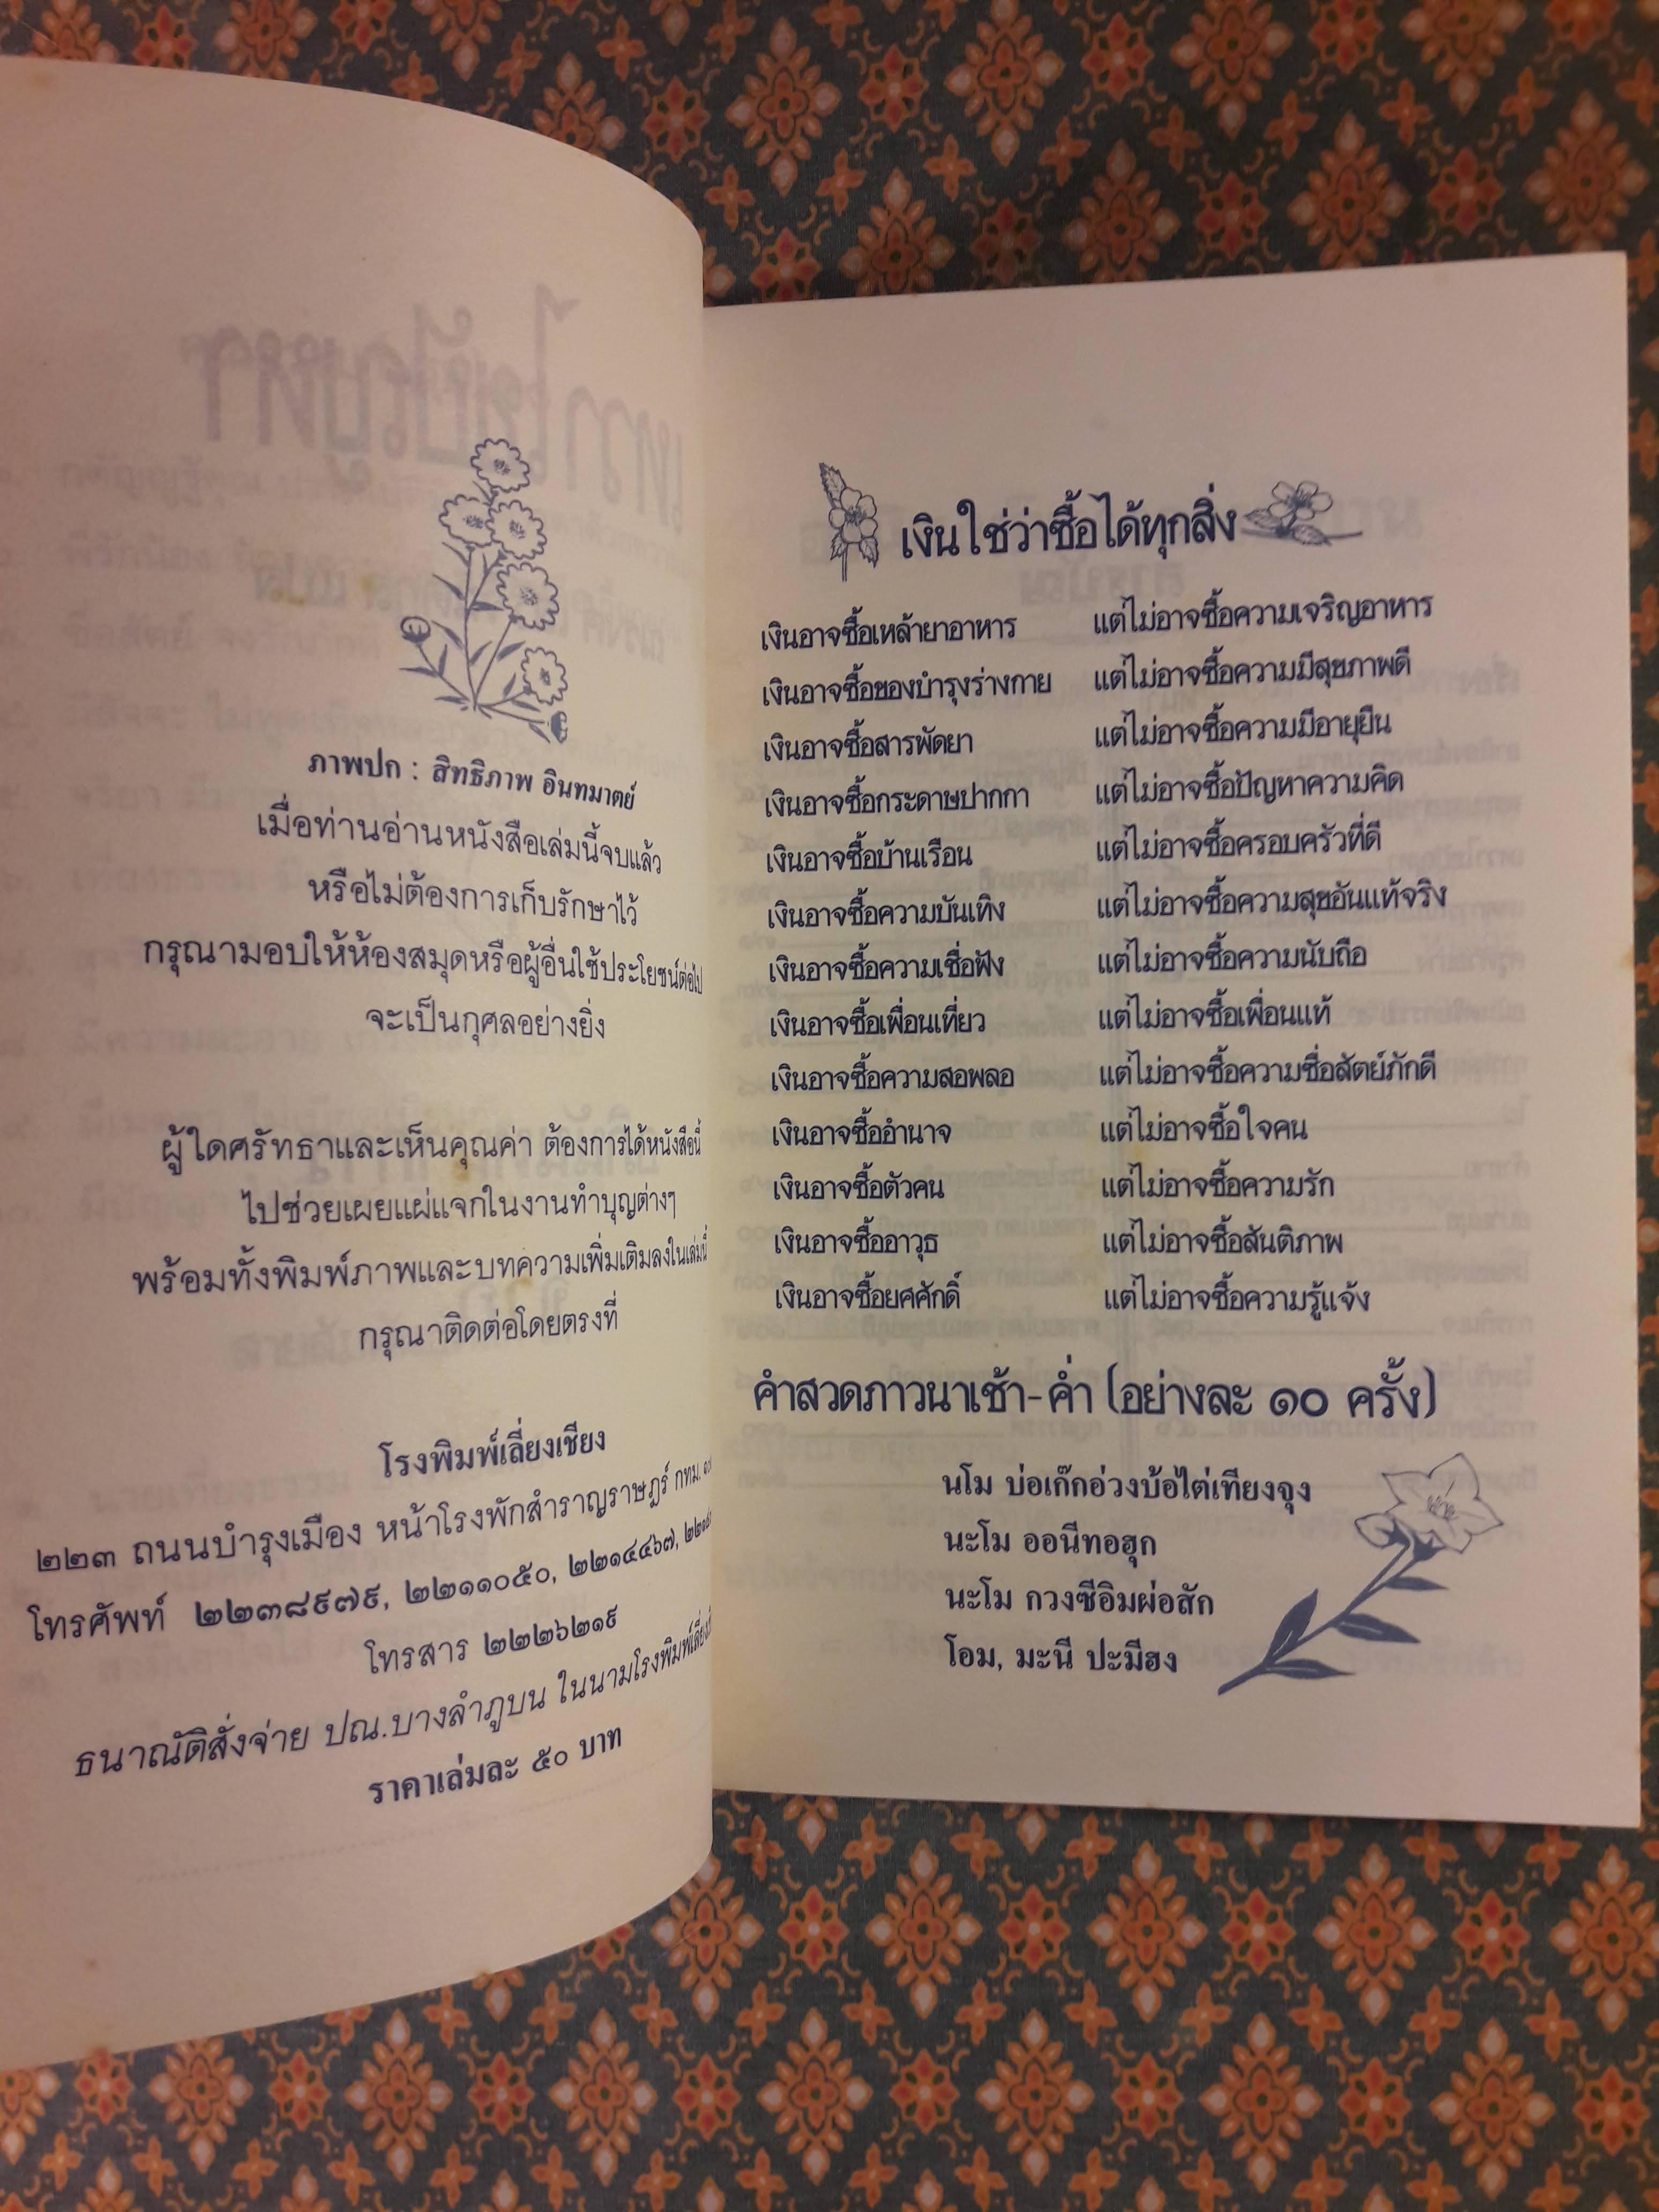 ภาพปก : สิทธิภาพ อินทมาตย์
เมื่อท่านอ่านหนังสือเล่มนี้จบแล้ว
หรือไม่ต้องการเก็บรักษาไว้
กรุณามอบให้ห้องสมุดหรือผู้อื่นใช้ประโยชน์ต่อไป
จะเป็นกุศลอย่างยิ่ง
ผู้ใดศรัทธาและเห็นคุณค่า ต้องการได้หนังสือนี้
ไปช่วยเผยแผ่แจกในงานทำบุญต่างๆ
พร้อมทั้งพิมพ์ภาพและบทความเพิ่มเติมลงในเล่มนี้
กรุณาติดต่อโดยตรงที่
โรงพิมพ์เลี่ยงเชียง
๒๒๓ ถนนบำรุงเมือง หน้าโรงพักสำราญราษฎร์ กทม.
โทรศัพท์ ๒๒๓๘๙๗๙, ๒๒๑๑๐๕๐, ๒๒๑๔๔๖๗,
โทรสาร ๒๒๒๖๒๑๙
ธนาณัติสั่งจ่าย ปณ.บางลำภูบน ในนามโรงพิมพ์เลี่ยงเชียง
ราคาเล่มละ ๕๐ บาท
เงินใช่ว่าซื้อได้ทุกสิ่ง
เงินอาจซื้อเหล้ายาอาหาร แต่ไม่อาจซื้อความเจริญอาหาร
เงินอาจซื้อของบำรุงร่างกาย แต่ไม่อาจซื้อความมีสุขภาพดี
เงินอาจซื้อสารพัดยา แต่ไม่อาจซื้อความมีอายุยืน
เงินอาจซื้อกระดาษปากกา แต่ไม่อาจซื้อปัญหาความคิด
เงินอาจซื้อบ้านเรือน แต่ไม่อาจซื้อครอบครัวที่ดี
เงินอาจซื้อความบันเทิง แต่ไม่อาจซื้อความสุขอันแท้จริง
เงินอาจซื้อความเชื่อฟัง แต่ไม่อาจซื้อความนับถือ
เงินอาจซื้อเพื่อนเที่ยว แต่ไม่อาจซื้อเพื่อนแท้
เงินอาจซื้อความสอพลอ แต่ไม่อาจซื้อความซื่อสัตย์ภักดี
เงินอาจซื้ออำนาจ แต่ไม่อาจซื้อใจคน
เงินอาจซื้อตัวคน แต่ไม่อาจซื้อความรัก
เงินอาจซื้ออาวุธ แต่ไม่อาจซื้อสันติภาพ
เงินอาจซื้อยศศักดิ์ แต่ไม่อาจซื้อความรู้แจ้ง
คำสวดภาวนาเช้า-ค่ำ (อย่างละ ๑๐ ครั้ง)
นโม บ่อเก๊กอ่วงบ้อไต่เทียงจุง
นะโม ออนีทอฮุก
นะโม กวงซีอิมผ่อสัก
โอม, มะนี ปะมีฮง